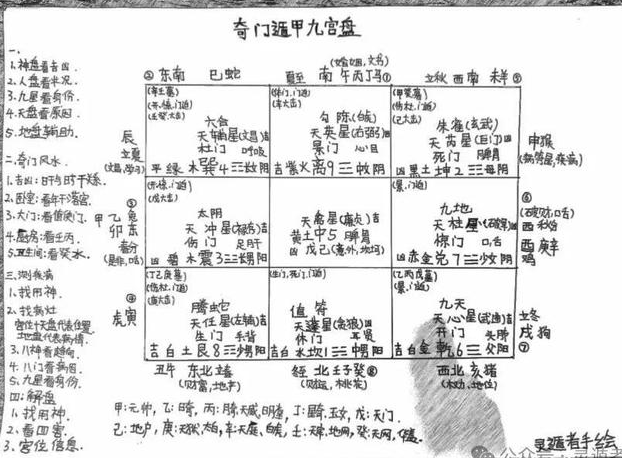 奇门遁甲九宫盘
一、
1.神盘看吉凶.
2.人盘看状况.
3.九星看身份.
4.天盘看原因.
5.地盘辅助.
二.奇门风水.
1.吉凶:日干与时干关系.
2.卧室:看年干落宫.
3.大门:看值使门.
4.厨房:看壬丙.
5.卫生间:看癸水.
三.测疾病
1.找用神.
2.找病灶
宫位+天盘代表位置.
地盘代表病情.
3.八神看趋向.
4.八门看病因.
5.九星看身份.
四:解盘
1.找用神.
2.看四害.
3.宫位信息.
③东南 巳蛇
夏至 南 午丙丁马①
(婚姻,文书)
立秋 西南 未羊⑤
辰
立夏
(文昌,学习)
六合
天辅星(文昌)吉
杜门 呼吸
平绿木巽4 长阴
勾陈(白虎)
天英星(右弼)
景门 心目
吉紫火离9 中阴
朱雀(玄武)
天芮星(巨门)凶
死门 脾胃
凶黑土坤2 母阴
申猴
(病符星,疾病)
③
甲乙兔
卯东
春分
(是非,口舌)
太阴
天冲星(禄存)吉
伤门 足肝
凶碧木震3 长男阳
天禽星(廉贞)吉
黄土中5 脾胃
凶戊己(意外,坎坷)
九地
天柱星(破军)凶
惊门 口舌
凶赤金兑7 少女阴
⑥
(破财,口舌)
西秋分
酉庚辛
鸡
④
虎寅
腾蛇
天任星(左辅)吉
生门 手背
吉白土艮8 少男阳
值符
天蓬星(贪狼)凶
休门 耳肾
吉白水坎1 中男阳
九天
天心星(武曲)吉
开门 头肺
吉白金乾6 父阳
立冬
戌狗
⑦
丑牛 东北 立春
(财富,地产)
冬至 北 壬子癸⑧
(财运,桃花)
西北 亥猪
(权力,地位)
甲:元帅,乙:日奇,丙:月奇,天威,明堂,丁:星奇,玉女,戊:天门.
己:地户,庚:天狱,太白,辛:天庭,白虎,壬:天牢,地网,癸:天网,华盖.
灵遁者手绘
公众号·灵遁者